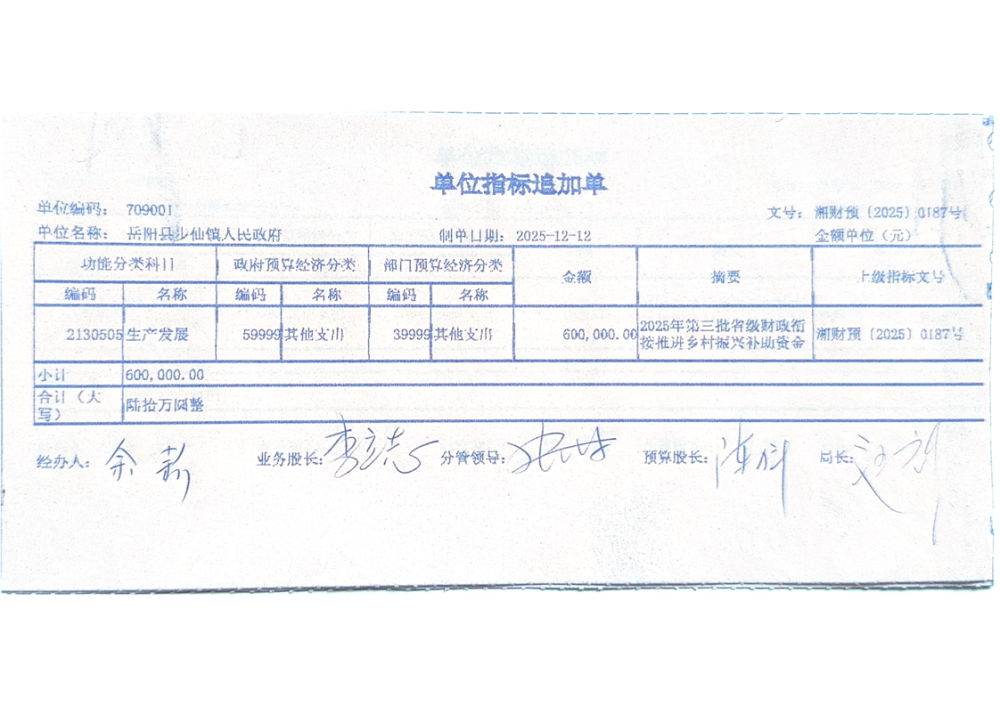 单位指标追加单
单位编码： 709001
文号： 湘财预〔2025〕0187号
单位名称： 岳阳县步仙镇人民政府 制单日期： 2025-12-12 金额单位（元）
功能分类科目 政府预算经济分类 部门预算经济分类 金额 摘要 上级指标文号
编码 名称 编码 名称 编码 名称
2130505 生产发展 59999 其他支出 39999 其他支出 600,000.00 2025年第三批省级财政衔 湘财预〔2025〕0187号
接推进乡村振兴补助资金
小计 600,000.00
合计（大
写） 陆拾万圆整
经办人： 业务股长： 李立志 分管领导： 预算股长： 局长：